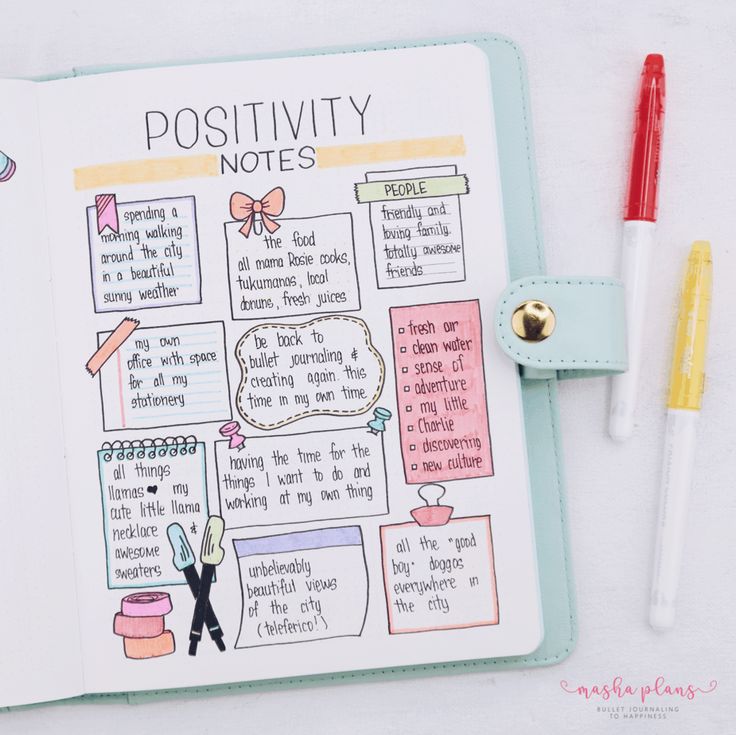 POSITIVITY
NOTES
spending a
morning walking
around the city
in a beautiful
sunny weather
the food
all mama Rosie cooks,
tukumanas, local
donuns, fresh juices
PEOPLE
friendly and
loving family.
totally awesome
friends
my own
office with space
for all my
stationery
be back to
bullet journaling &
creating again. this
time in my own time
fresh air
clean water
sense of
adventure
my little
Charlie
discovering
new culture
all things
llamas ♥ my
cute little llama
necklace &
awesome
sweaters
having the time for the
things I want to do and
working at my own thing
unbelievably
beautiful views
of the city
(teleferico!)
all the "good
boy" doggos
everywhere in
the city
masha plans
BULLET JOURNALING
TO HAPPINESS